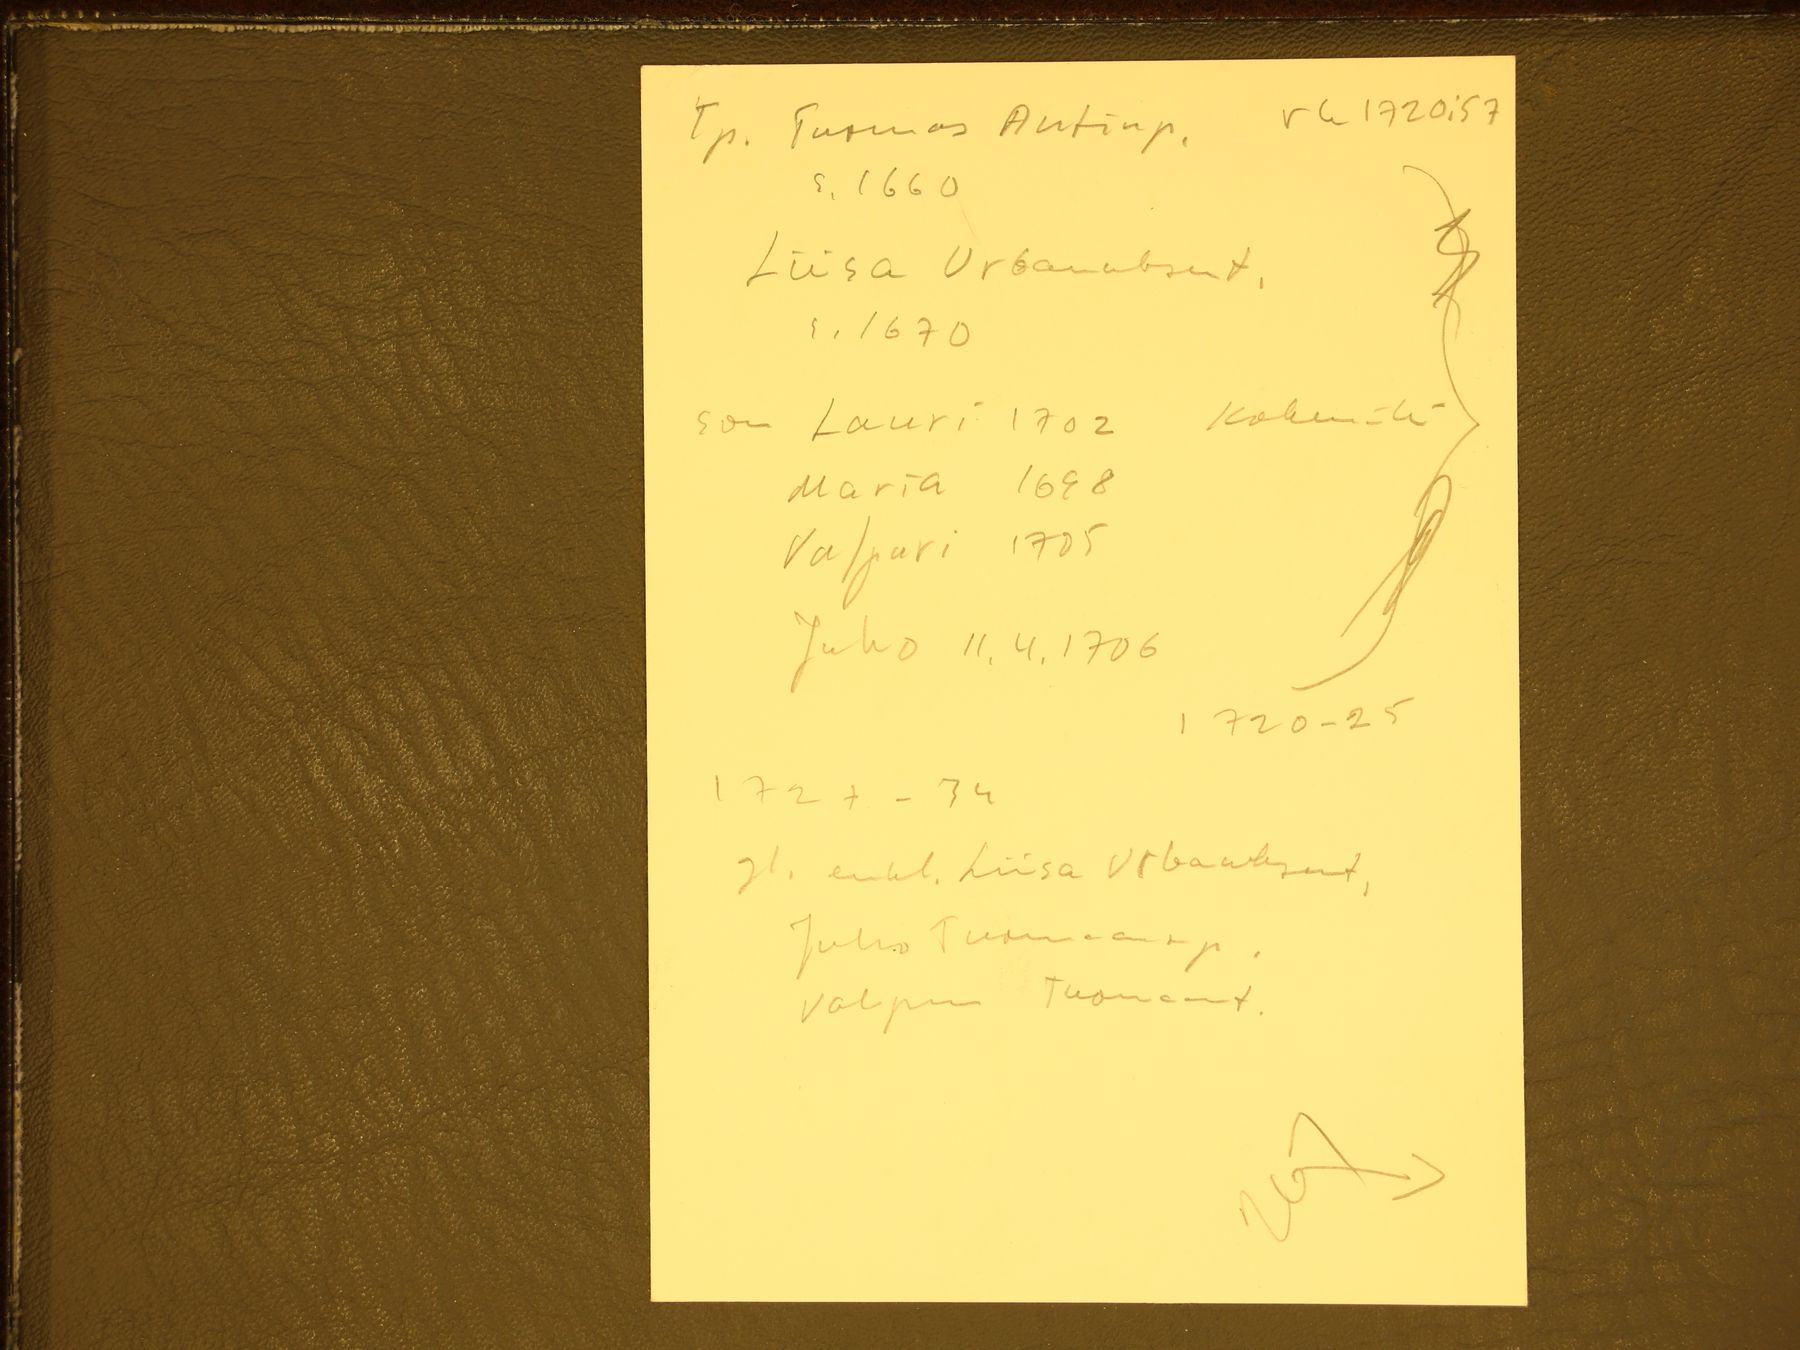 Tp. Tuomas Antinp. rk 1720:57
s. 1660
Liisa Urbanuksent.
s. 1670
son Lauri 1702
Maria 1698
Valpuri 1705
Juho 11.4.1706
1720-25
1727-34
Liisa Urbanuksent.
Juho Tuomaanp.
Valpuri Tuomaant.
267